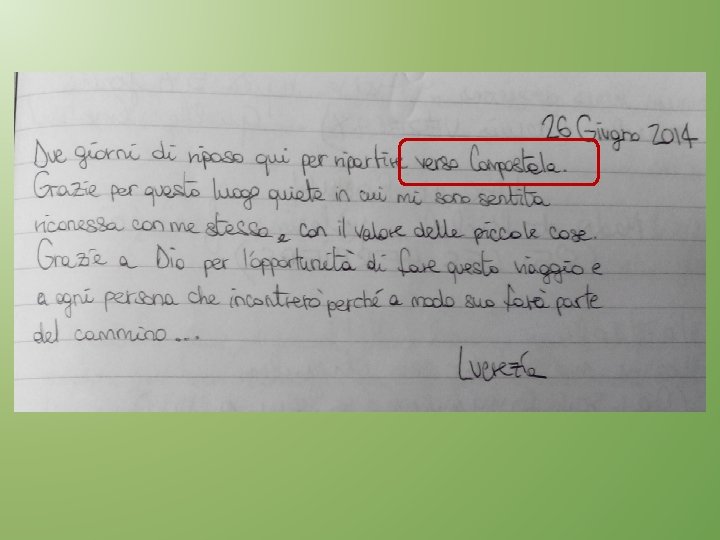 26 Giugno 2014
Due giorni di riposo qui per ripartire verso Compostela.
Grazie per questo luogo quieto in cui mi sono sentita
riconessa con me stessa e con il valore delle piccole cose.
Grazie a Dio per l'opportunità di fare questo viaggio e
a ogni persona che incontrerò perché a modo suo farà parte
del cammino...
Lucrezia